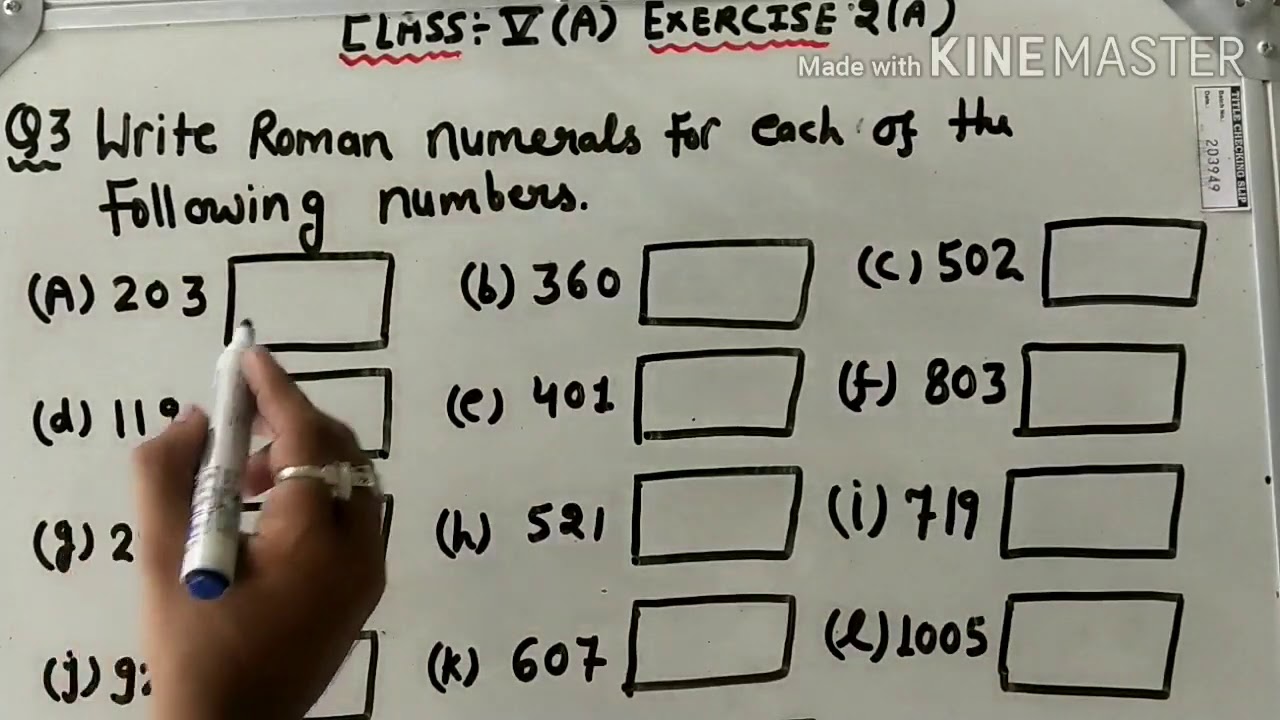 CLASS:- V (A) EXERCISE 2(A)
Made with KINEMASTER
TITLE CHECKING SLIP
Batch No.:
Date.
203949
Q3 Write Roman numerals for each of the
following numbers.
(A) 203 (b) 360 (c) 502
(d) 119 (e) 401 (f) 803
(g) 2 (h) 521 (i) 719
(j) 9 (k) 607 (l) 1005